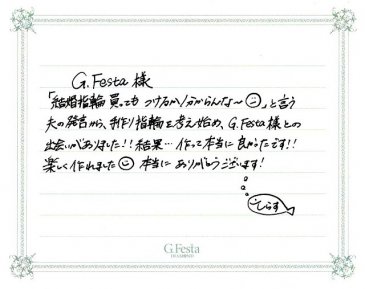 G.Festa 様
「結婚指輪買っても つけるか分からんな～☹」と言う
夫の発言から、手作り指輪を考え始め、G.Festa様との
出会いがありました!!結果…作って本当に良かったです!!
楽しく作れました☺本当に ありがとうございます!
しらす
G.Festa